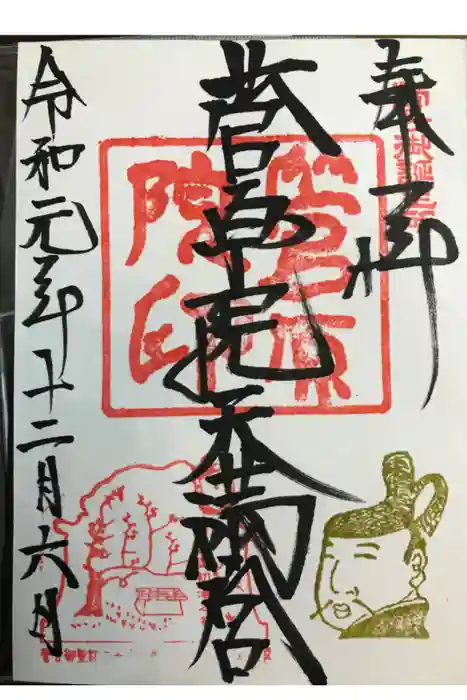 奉拝
菅原院天満宮
令和元年十二月六日
菅原
院印